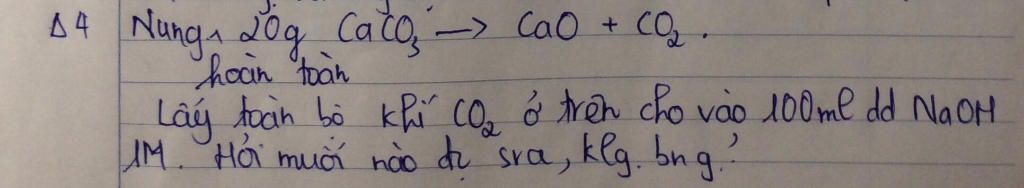 Δ4 Nung 20g CaCO₃ → CaO + CO₂.
hoàn toàn
Lấy toàn bộ khí CO₂ ở trên cho vào 100ml dd NaOH
1M. Hỏi muối nào đc sra, klg. bn g?